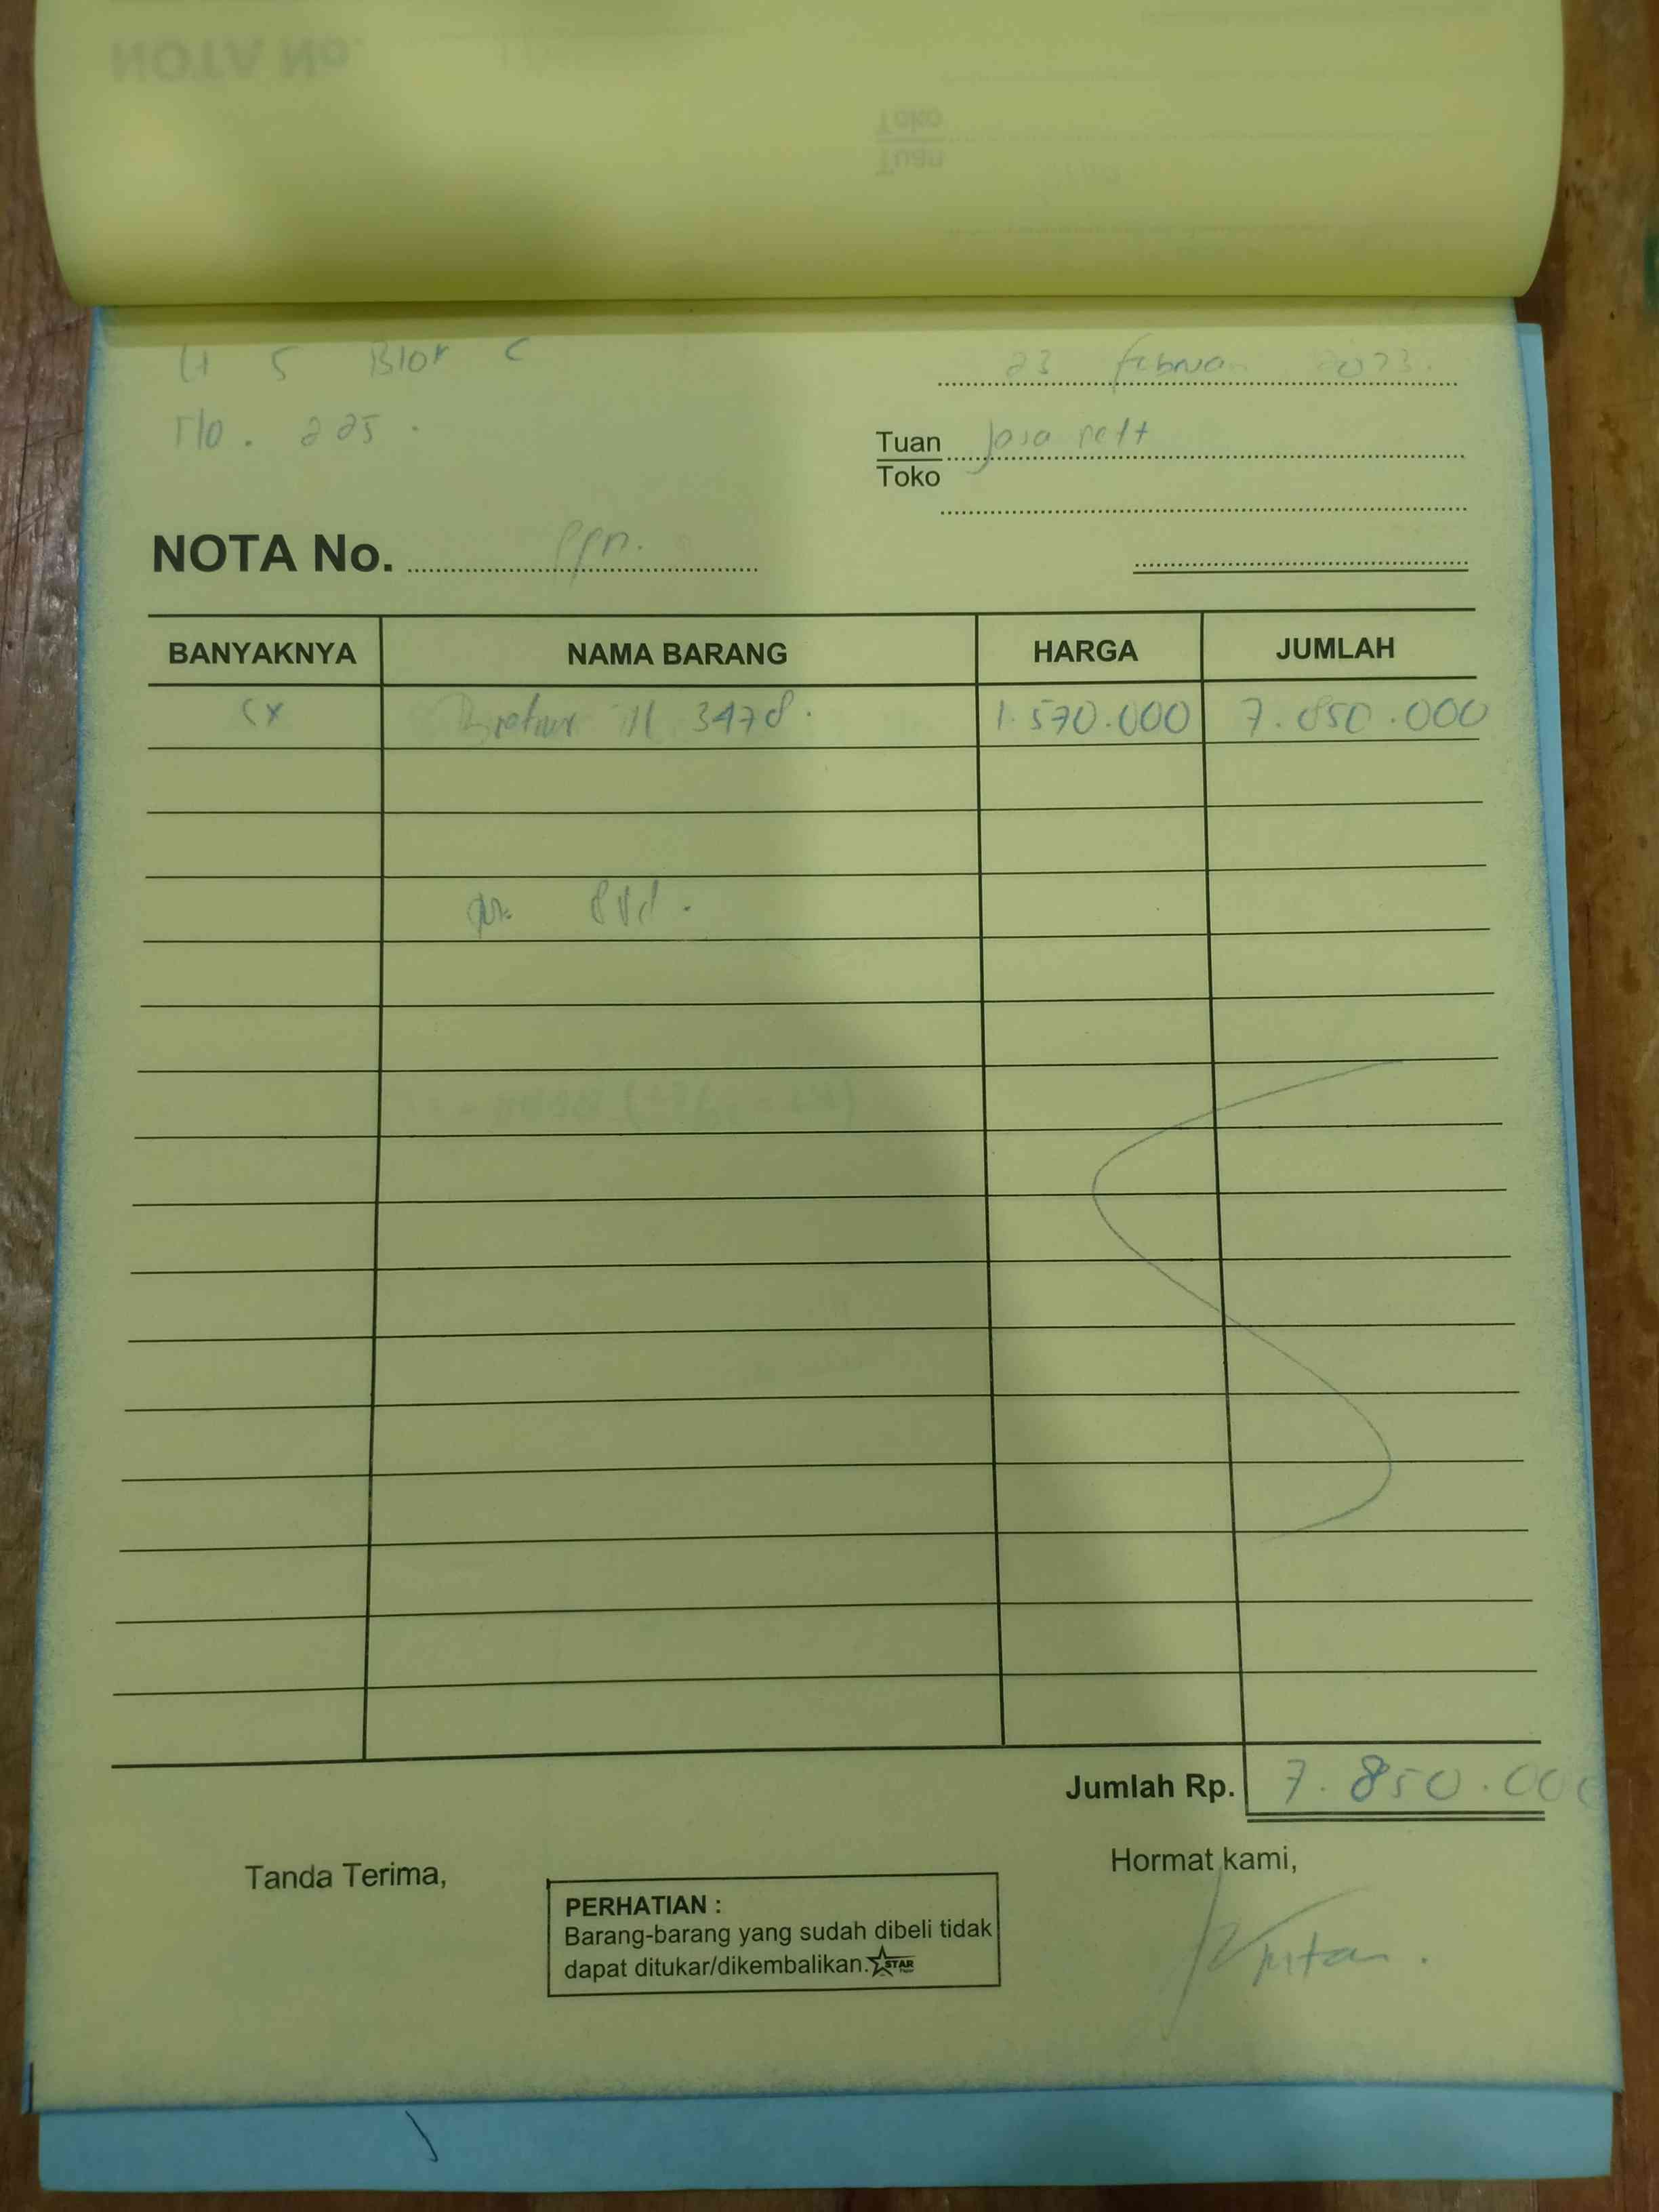 Lt 5 Blok C
23 februa 2023.
No. 225.
Tuan Jasa
Toko
NOTA No. ppn.
BANYAKNYA NAMA BARANG HARGA JUMLAH
5x 3478. 1.570.000 7.850.000
Jumlah Rp. 7.850.000
Tanda Terima,
Hormat kami,
PERHATIAN :
Barang-barang yang sudah dibeli tidak
dapat ditukar/dikembalikan. STAR
Intan.